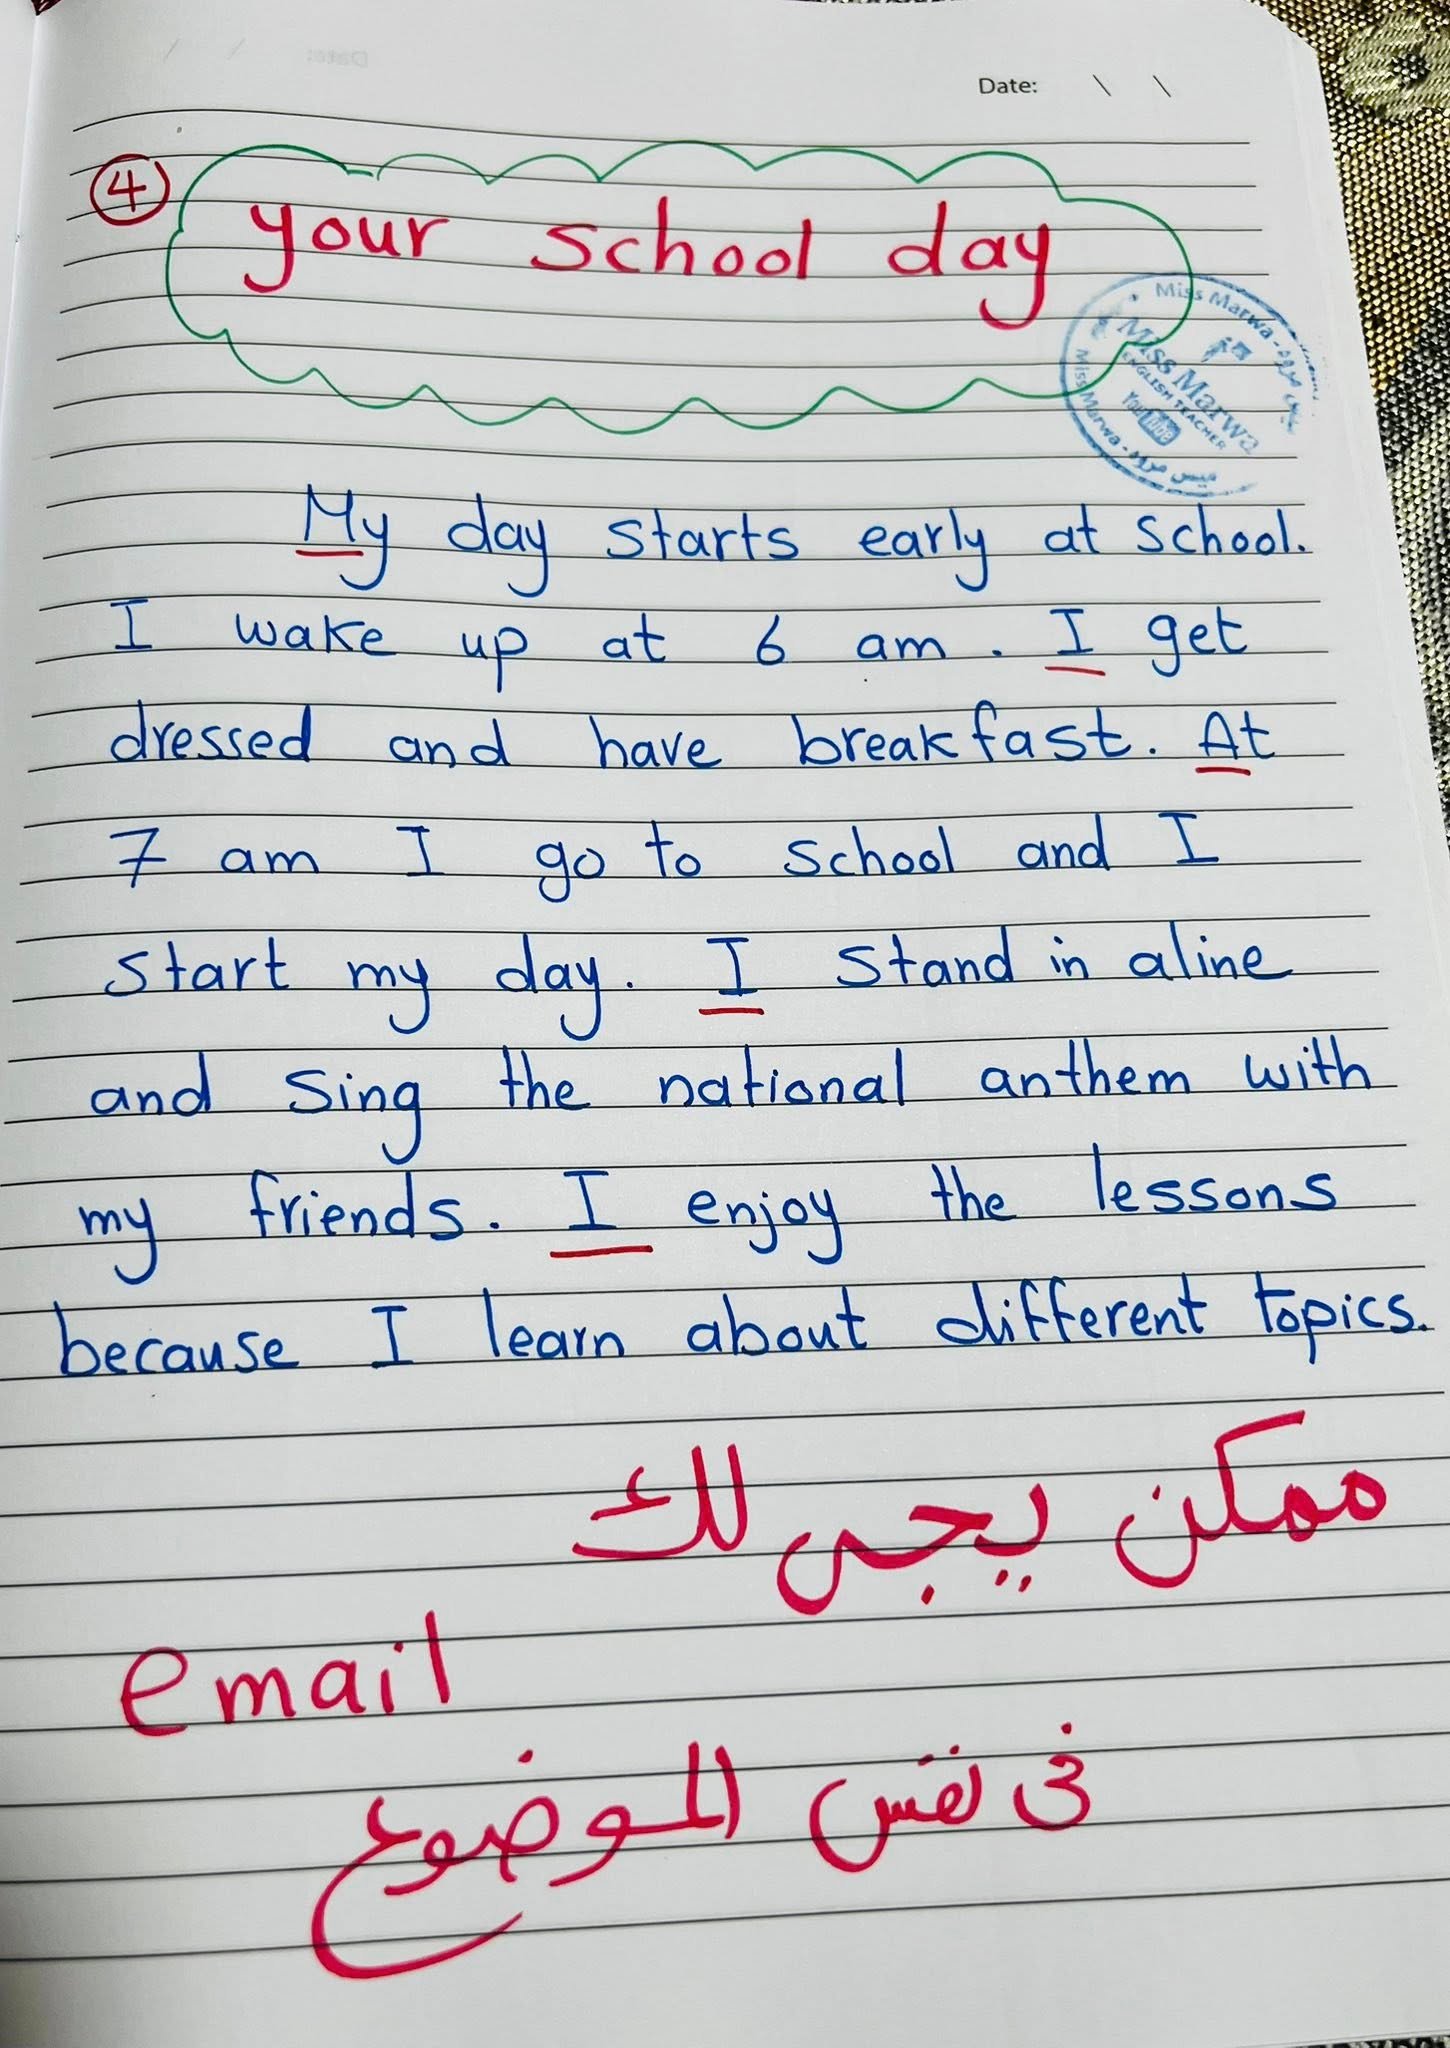 Date: \ \
4
your school day
Miss Marwa - ميس مروه
Miss Marwa
ENGLISH TEACHER
YouTube
Miss Marwa - ميس مروه
My day starts early at school.
I wake up at 6 am. I get
dressed and have breakfast. At
7 am I go to school and I
start my day. I stand in aline
and sing the national anthem with
my friends. I enjoy the lessons
because I learn about different topics.
ممكن يجى لك
email
فى نفس الموضوع